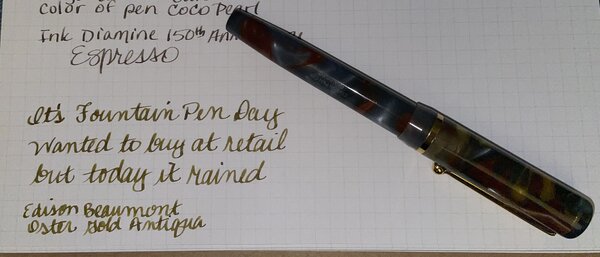 color of pen Coco Pearl
Ink Diamine 150th
Espresso
It's Fountain Pen Day
Wanted to buy at retail
but today it rained
Edison Beaumont
Oster Gold Antiqua